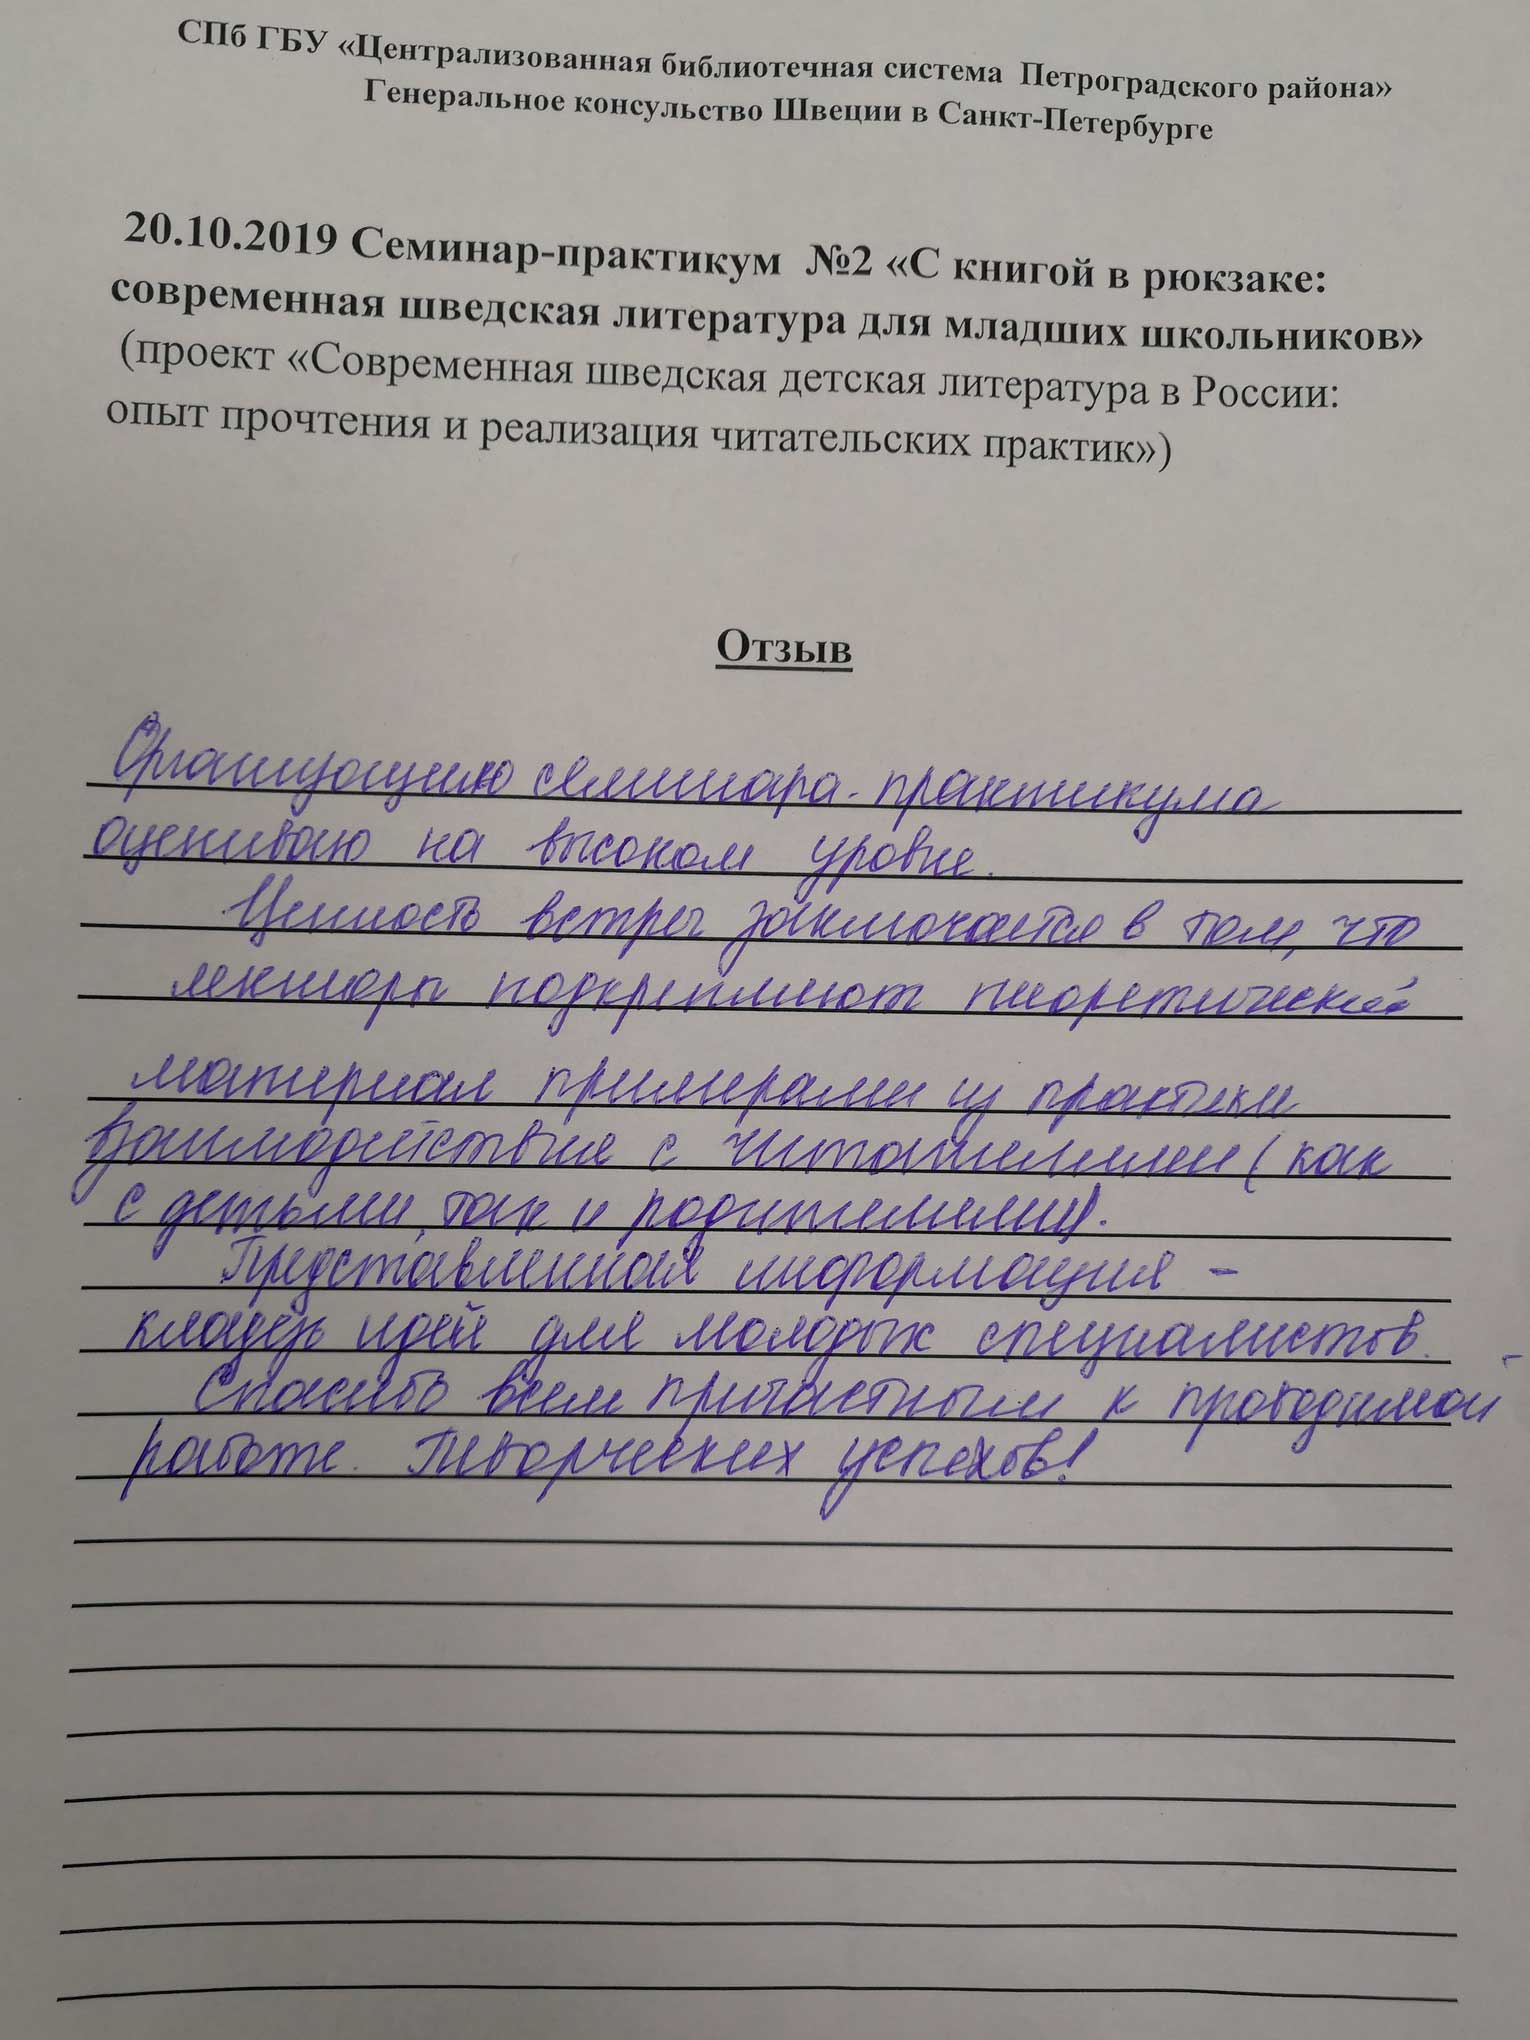 СПб ГБУ «Централизованная библиотечная система Петроградского района»
Генеральное консульство Швеции в Санкт-Петербурге
20.10.2019 Семинар-практикум №2 «С книгой в рюкзаке:
современная шведская литература для младших школьников»
(проект «Современная шведская детская литература в России:
опыт прочтения и реализация читательских практик»)
Отзыв
Организацию семинара-практикума
оцениваю на высоком уровне.
Ценность встреч заключается в том, что
лекторы подкрепляют теоретический
материал примерами из практики
взаимодействия с читателями (как
с детьми, так и родителями).
Представленная информация -
кладезь идей для молодых специалистов.
Спасибо всем причастным к проводимой
работе. Творческих успехов!